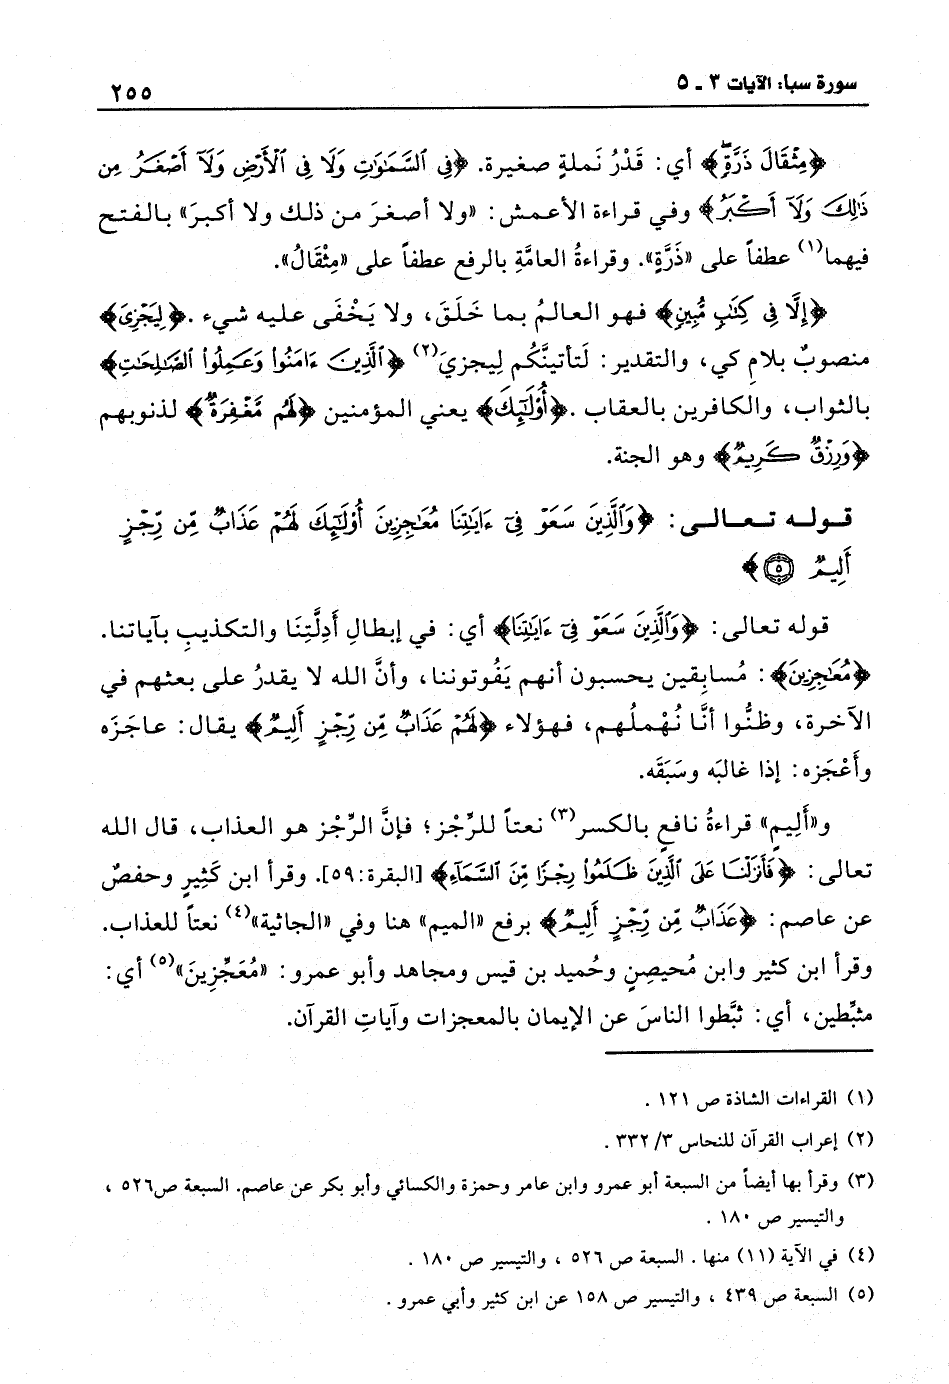 سورة سبأ: الآيات ٣ - ٥
٢٥٥
﴿مِثْقَالَ ذَرَّةٍ﴾ أي: قَدْرُ نَملةٍ صغيرة. ﴿فِى ٱلسَّمَٰوَٰتِ وَلَا فِى ٱلْأَرْضِ وَلَآ أَصْغَرُ مِن
ذَٰلِكَ وَلَآ أَكْبَرُ﴾ وفي قراءة الأعمش: «ولا أصغرَ من ذلك ولا أكبرَ» بالفتح
فيهما(١) عطفاً على «ذَرَّةٍ». وقراءةُ العامَّةِ بالرفع عطفاً على «مِثْقَالُ».
﴿إِلَّا فِى كِتَٰبٍ مُّبِينٍ﴾ فهو العالمُ بما خَلَقَ، ولا يَخْفَى عليه شيء .﴿لِيَجْزِىَ﴾
منصوبٌ بلامِ كي، والتقدير: لَتأتينَّكُم لِيجزيَ(٢) ﴿ٱلَّذِينَ ءَامَنُوا۟ وَعَمِلُوا۟ ٱلصَّٰلِحَٰتِ﴾
بالثواب، والكافرين بالعقاب .﴿أُو۟لَٰٓئِكَ﴾ يعني المؤمنين ﴿لَهُم مَّغْفِرَةٌ﴾ لذنوبهم
﴿وَرِزْقٌ كَرِيمٌ﴾ وهو الجنة.
قوله تعالى: ﴿وَٱلَّذِينَ سَعَوْ فِىٓ ءَايَٰتِنَا مُعَٰجِزِينَ أُو۟لَٰٓئِكَ لَهُمْ عَذَابٌ مِّن رِّجْزٍ
أَلِيمٌ ٥﴾
قوله تعالى: ﴿وَٱلَّذِينَ سَعَوْ فِىٓ ءَايَٰتِنَا﴾ أي: في إبطالِ أَدِلَّتِنَا والتكذيبِ بآياتنا.
﴿مُعَٰجِزِينَ﴾: مُسابِقين يحسبون أنهم يَفُوتوننا، وأنَّ الله لا يقدرُ على بعثهم في
الآخرة، وظنُّوا أنَّا نُهْملُهم، فهؤلاء ﴿لَهُمْ عَذَابٌ مِّن رِّجْزٍ أَلِيمٌ﴾ يقال: عاجَزَه
وأَعْجَزه: إذا غالبَه وسَبَقَه.
و«أَلِيمٍ» قراءةُ نافعٍ بالكسر(٣) نعتاً للرِّجْز؛ فإنَّ الرِّجْز هو العذاب، قال الله
تعالى: ﴿فَأَنزَلْنَا عَلَى ٱلَّذِينَ ظَلَمُوا۟ رِجْزًا مِّنَ ٱلسَّمَآءِ﴾ [البقرة:٥٩]. وقرأ ابن كَثِيرٍ وحفصٌ
عن عاصم: ﴿عَذَابٌ مِّن رِّجْزٍ أَلِيمٌ﴾ برفع «الميم» هنا وفي «الجاثية»(٤) نعتاً للعذاب.
وقرأ ابن كثير وابن مُحيصِنٍ وحُميد بن قيس ومجاهد وأبو عمرو: «مُعَجِّزِينَ»(٥) أي:
مثبِّطين، أي: ثبَّطوا الناسَ عن الإيمان بالمعجزات وآياتِ القرآن.
(١) القراءات الشاذة ص ١٢١ .
(٢) إعراب القرآن للنحاس ٣/ ٣٣٢ .
(٣) وقرأ بها أيضاً من السبعة أبو عمرو وابن عامر وحمزة والكسائي وأبو بكر عن عاصم. السبعة ص٥٢٦ ،
والتيسير ص ١٨٠ .
(٤) في الآية (١١) منها . السبعة ص ٥٢٦ ، والتيسير ص ١٨٠ .
(٥) السبعة ص ٤٣٩ ، والتيسير ص ١٥٨ عن ابن كثير وأبي عمرو .